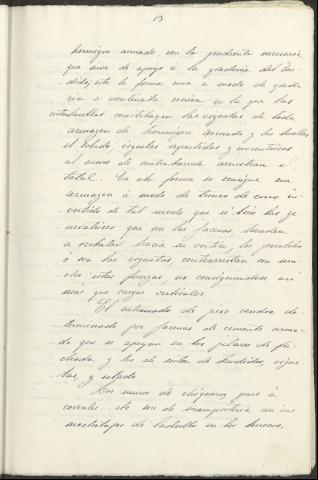 13
hormigon armado con la pendiente necesaria
que sirve de apoyo á la graderia del ten-
dido; este lo forma una á modo de grade-
ria o escalinata conica en la que las
contrahuellas constituyen las viguetas de toda
armazon de hormigon armado y las huellas
el solado; viguetas repartidas y concentricas
al muro de contrabarrera arriostran el
total. En esta forma se consigue un
armazon á modo de tronco de cono in-
vertido de tal modo que si bien las ge-
neratrices que son las jacenas, tienden
a resbalar hacia su vertice, los paralelos
ó sea las viguetas, contrarrestan con
estas fuerzas, no consiguiendose asi
mas que cargas verticales.
El entramado de piso vendra de-
terminado por jacenas de cemento arma-
do que se apoyan en los pilares de fa-
chada y los de sosten de tendidos, vigue-
tas, y solado.
Los muros de chiqueros, pasos á
corrales, etc son de mamposteria con sus
mochetajes de ladrillo en los huecos.